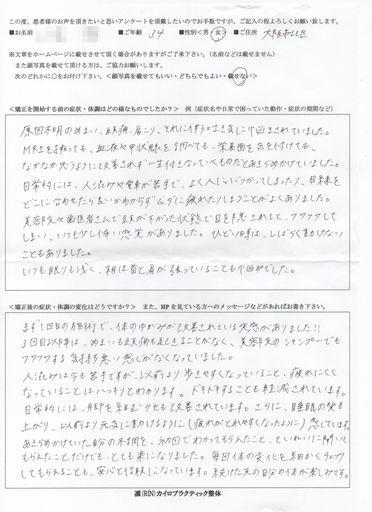 この度、患者様のお声を頂きたいと思いアンケートを頂戴したいのでお手数ですが、ご記入の程よろしくお願い致します。
■お名前 ■ご年齢 34 ■性別<男・女> ■ご住所 大阪市北区
※文章をホームページに載せさせて頂く場合がありますがご了承下さい。(名前などは載せません)
また顔写真を載せさせて頂ける方は、ご協力お願いします。
次のどれかに〇をお付け下さい。<顔写真を載せてもいい・どちらでもよい・載せない>
<矯正を開始する前の症状・体調はどの様なものでしたか?> 例(症状名や日常で困っていた動作・症状の期間など)
原因不明のめまい、頭痛、肩こり、それに伴う吐き気に悩まされていました。
MRIを撮っても、血液や甲状腺を調べても、栄養面を気を付けても、
なかなか思うように改善されず一生付きあっていくものだとあきらめかけていました。
日常的には、人混みや電車が苦手で、よく人にぶつかってしまったり、目線を
どこに合わせたら良いかわからず ムダに疲れたりしまうことがよくありました。
美容院や歯医者さんで頭が下がった状態で目を閉じられると、フワフワして
しまい、いつも少し怖い感覚がありました。ひどい時は、しばらく動けない
こともありました。
いつも眠りも浅く、朝は首と肩が張っていることも悩みでした。
<矯正後の症状・体調の変化はどうですか?> また、HPを見ている方へのメッセージなどがあればお書き下さい。
まず1回目の施術で、体のゆがみが改善されている実感がありました!!
3回目以降は、めまいも頭痛も起きることがなく、美容院のシャンプーでも
フワフワする気持ち悪い感じがなくなっていました。
人混みは今も苦手ですが、以前より歩きやすくなっていること、疲れにくく
なっていることはハッキリとわかります。ドキドキすることも軽減されています。
日常的には、脚を組むクセも改善されています。さらに、睡眠の質も
上がり、以前より元気に動けるように(疲れがとれやすくなったように)感じています。
あきらめかけていた自分の不調を、初回でわかってもらえたこと、ていねいに聞いて
もらえたことだけでも、とても楽になりました。毎回体の変化を細かくチェック
してもらえることも、安心と信頼になっています。続けた先の自分の体が楽しみです。
凛(RIN)カイロプラクティック整体